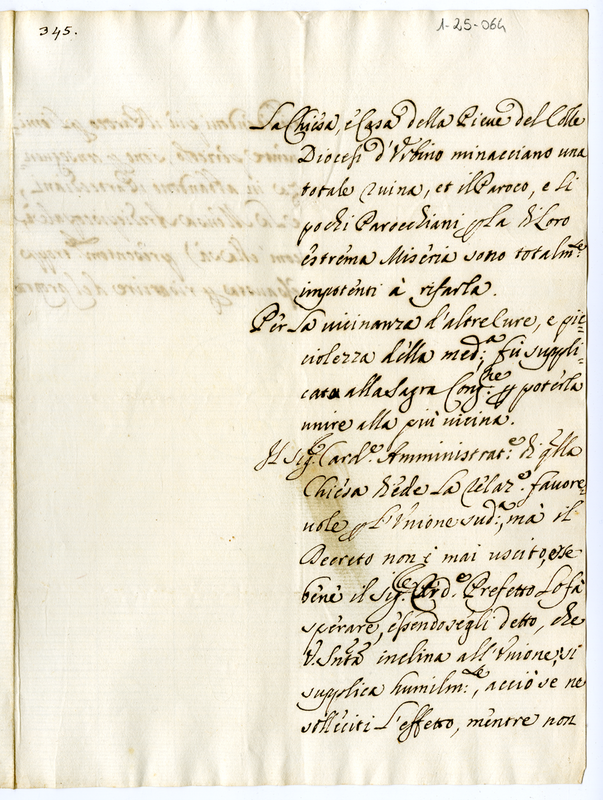 345.
1-25-064
La Chiesa, e Casa della Pieve del Colle
Diocesi d'Urbino minacciano una
totale ruina, et il Paroco, e li
pochi Parocchiani p la di loro
estrema Miseria sono totalm.te
impotenti à rifarla.
Per la vicinanza d'altre Cure, e pic=
ciolezza della med.a, fù suppli=
cato alla Sagra Cong.ne p poterla
unire alla più vicina.
Il Sig.r Card.e Amministrat.e di qlla
Chiesa diede la relaz.e favore=
vole p l'Unione sud.a, mà il
Decreto non è mai uscito, e se
bene il Sig.r Card.e Prefetto lo fà
sperare, essendosegli detto, che
V. Sntà inclina all'Unione, si
supplica humilm.te, acciò se ne
solleciti l'effetto, mentre non